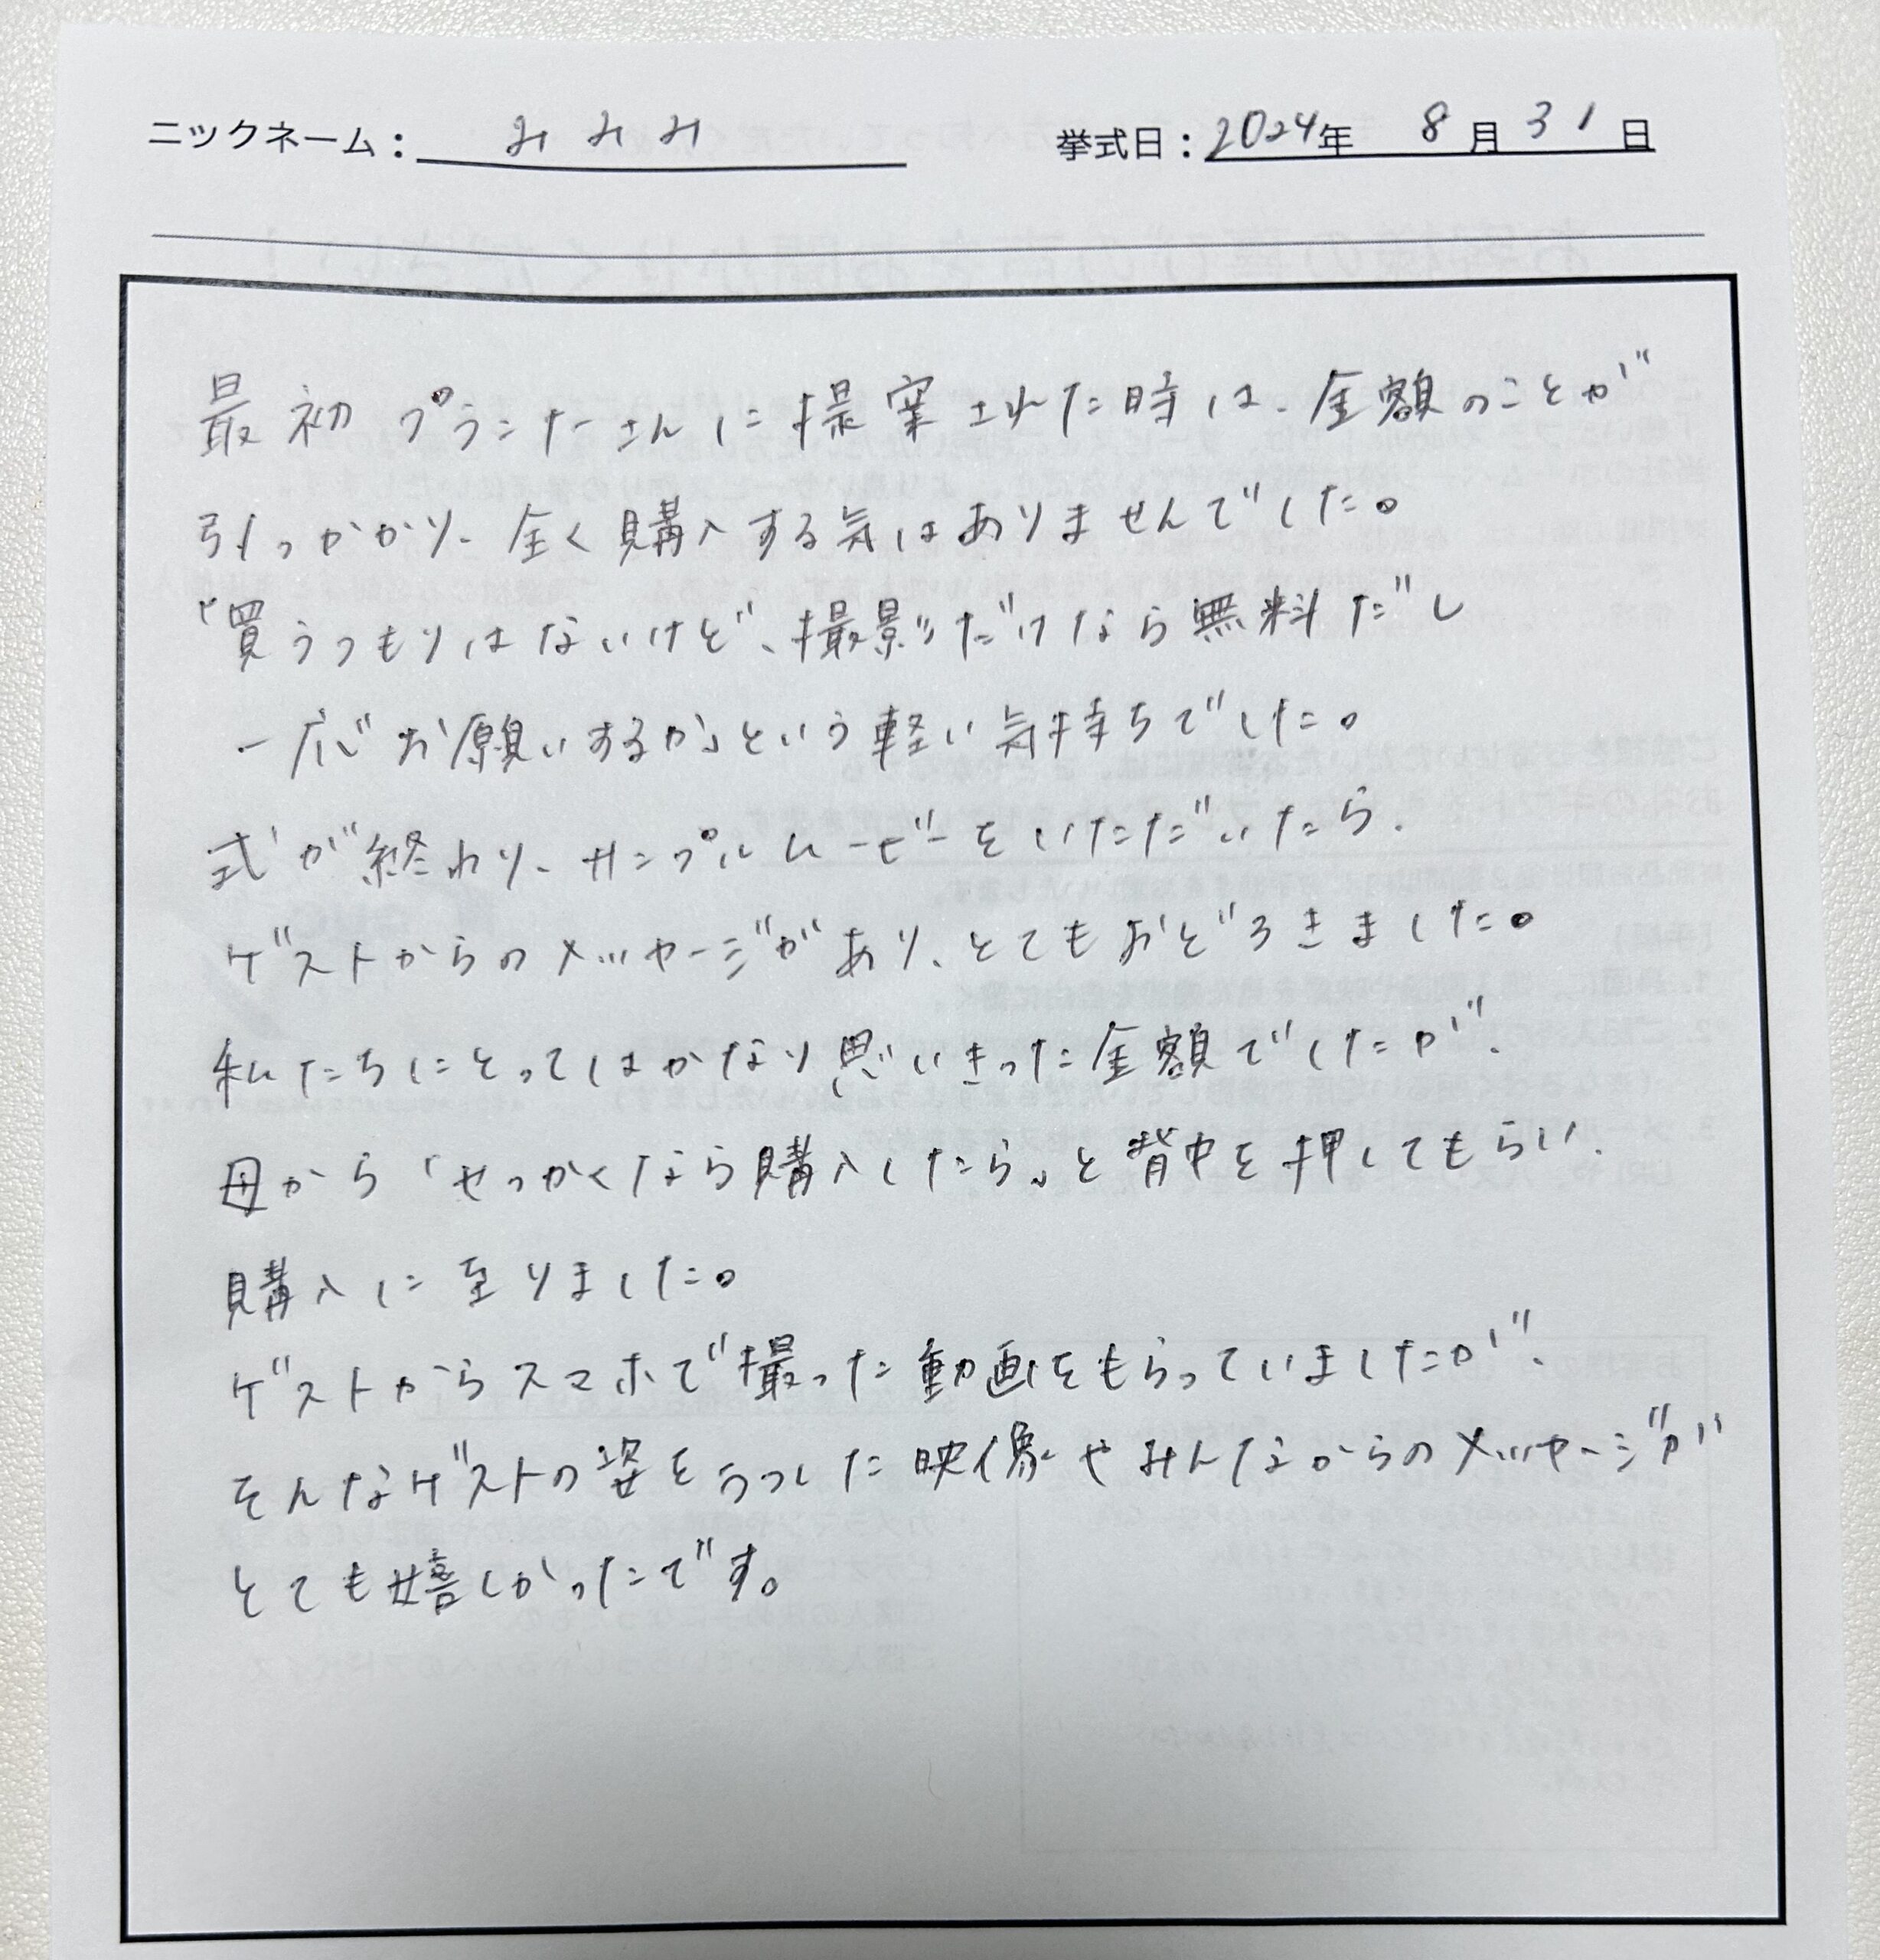 ニックネーム： みみみ 挙式日：2024年 8月31日
最初プランナーさんに提案された時は、金額のことが
引っかかり、全く購入する気はありませんでした。
「買うつもりはないけど、撮影だけなら無料だし
一応お願いするか」という軽い気持ちでした。
式が終わり、サンプルムービーをいただいたら、
ゲストからのメッセージがあり、とてもおどろきました。
私たちにとってはかなり思いきった金額でしたが、
母から「せっかくなら購入したら」と背中を押してもらい、
購入に至りました。
ゲストからスマホで撮った動画をもらっていましたが、
そんなゲストの姿をうつした映像やみんなからのメッセージが
とても嬉しかったです。